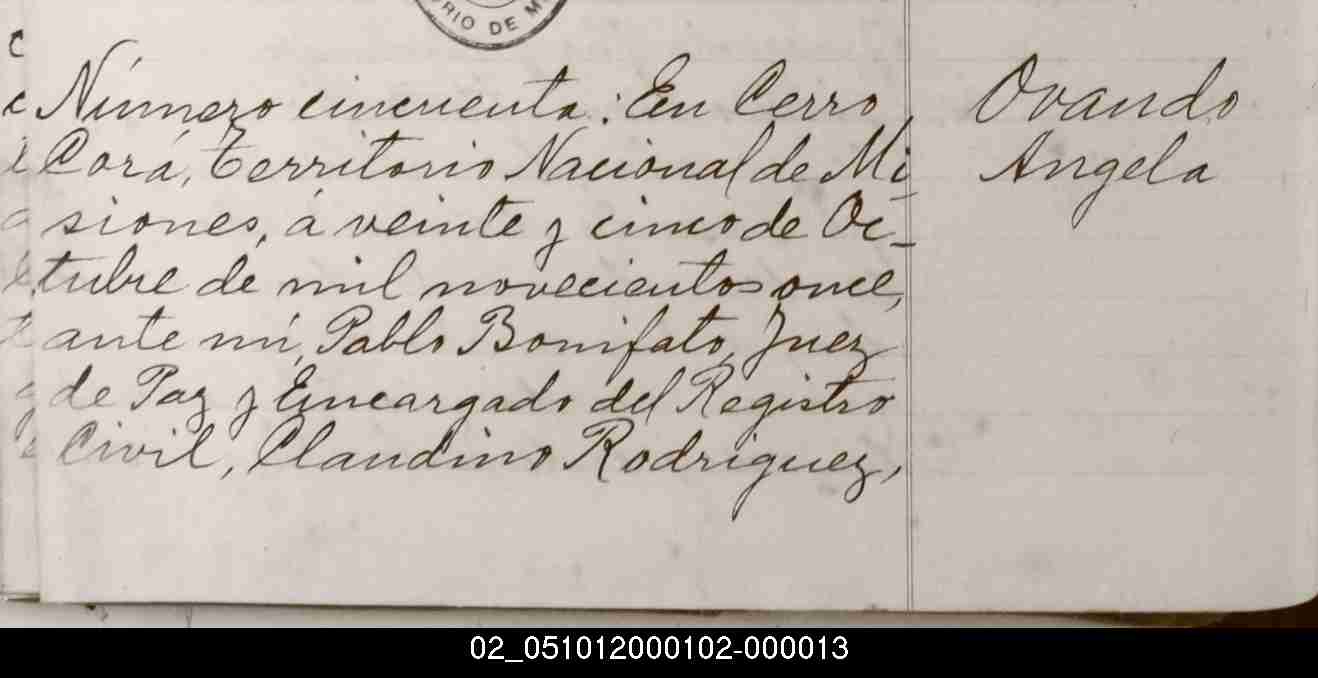 RIO DE M
Número cincuenta: En Cerro
Corá, Territorio Nacional de Mi
siones, á veinte y cinco de Oc-
tubre de mil novecientos once,
ante mí, Pablo Bonifato, Juez
de Paz y Encargado del Registro
Civil, Claudino Rodriguez,
Ovando
Angela
02_051012000102-000013